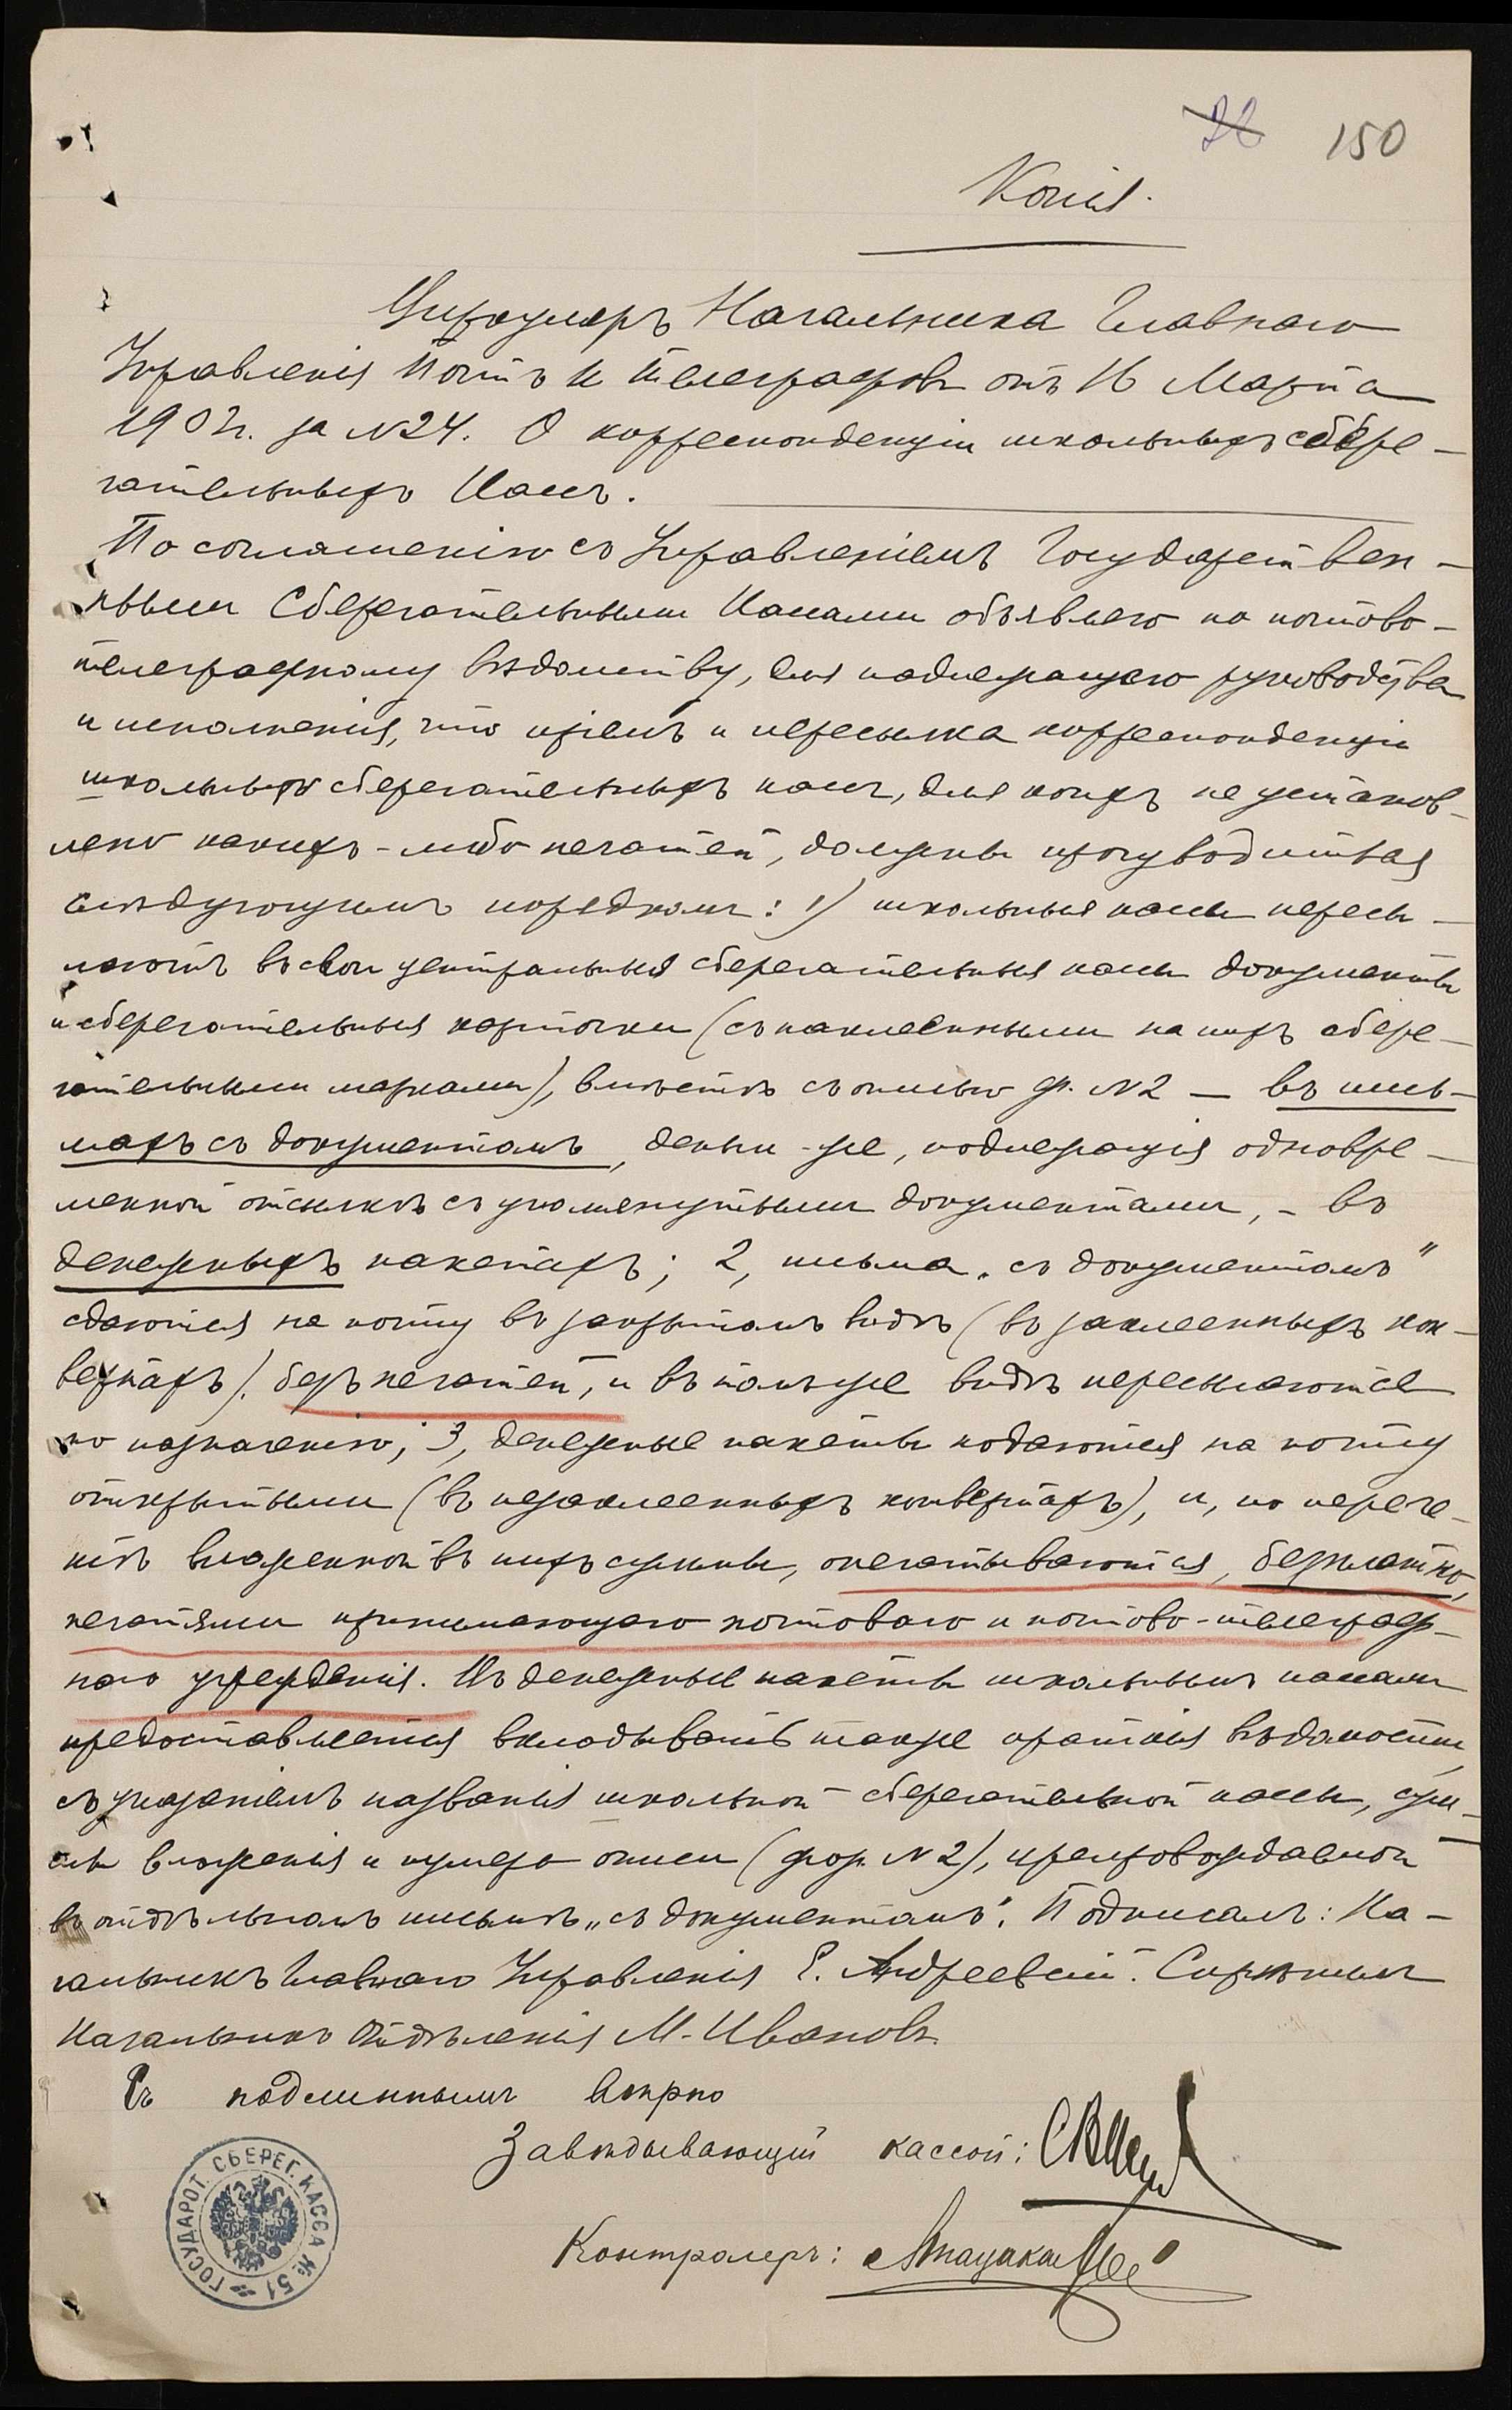 28 150
Копія.
Циркуляръ Начальника Главнаго
Управленія Почтъ и Телеграфовъ отъ 16 Марта
1902 г. за №24. О корреспонденціи школьныхъ сбере-
гательныхъ Кассъ.
По соглашенію съ Управленіемъ Государствен-
ными Сберегательными Кассами объявляю по почтово-
телеграфному вѣдомству, для надлежащаго руководства
и исполненія, что пріемъ и пересылка корреспонденціи
школьныхъ сберегательныхъ кассъ, для коихъ не установ-
лено какихъ-либо печатей, должны производиться
слѣдующимъ порядкомъ: 1) школьныя кассы пересы-
лаютъ въ свои центральныя сберегательныя кассы документы
и сберегательныя карточки (съ наклеенными на нихъ сбере-
гательными марками), вмѣстѣ съ описью ф. №2 — въ пись-
махъ съ документомъ, деньги-же, подлежащія одновре-
менной отсылкѣ съ упомянутыми документами, - въ
денежныхъ пакетахъ; 2, письма „съ документомъ"
сдаются на почту въ закрытомъ видѣ (въ заклеенныхъ кон-
вертахъ), безъ печатей, и въ томъ же видѣ пересылаются
по назначенію; 3, денежные пакеты подаются на почту
открытыми (въ незаклеенныхъ конвертахъ), и, по пересче-
тѣ вложенной въ нихъ суммы, опечатываются, безплатно,
печатями принимающаго почтоваго и почтово-телеграф-
наго учрежденія. Въ денежные пакеты школьнымъ кассамъ
предоставляется вкладывать также краткія вѣдомости,
съ указаніемъ названія школьной сберегательной кассы, сум-
мы вложенія и нумера описи (фор. №2), препровождаемой
въ отдѣльномъ письмѣ „съ документомъ". Подписалъ: На-
чальникъ Главнаго Управленія Андреевскій. Скрѣпилъ
Начальникъ Отдѣленія М. Ивановъ.
Съ подлиннымъ вѣрно
Завѣдывающій кассой:
Контролеръ:
ГОСУДАРСТ. СБЕРЕГ. КАССА № 51